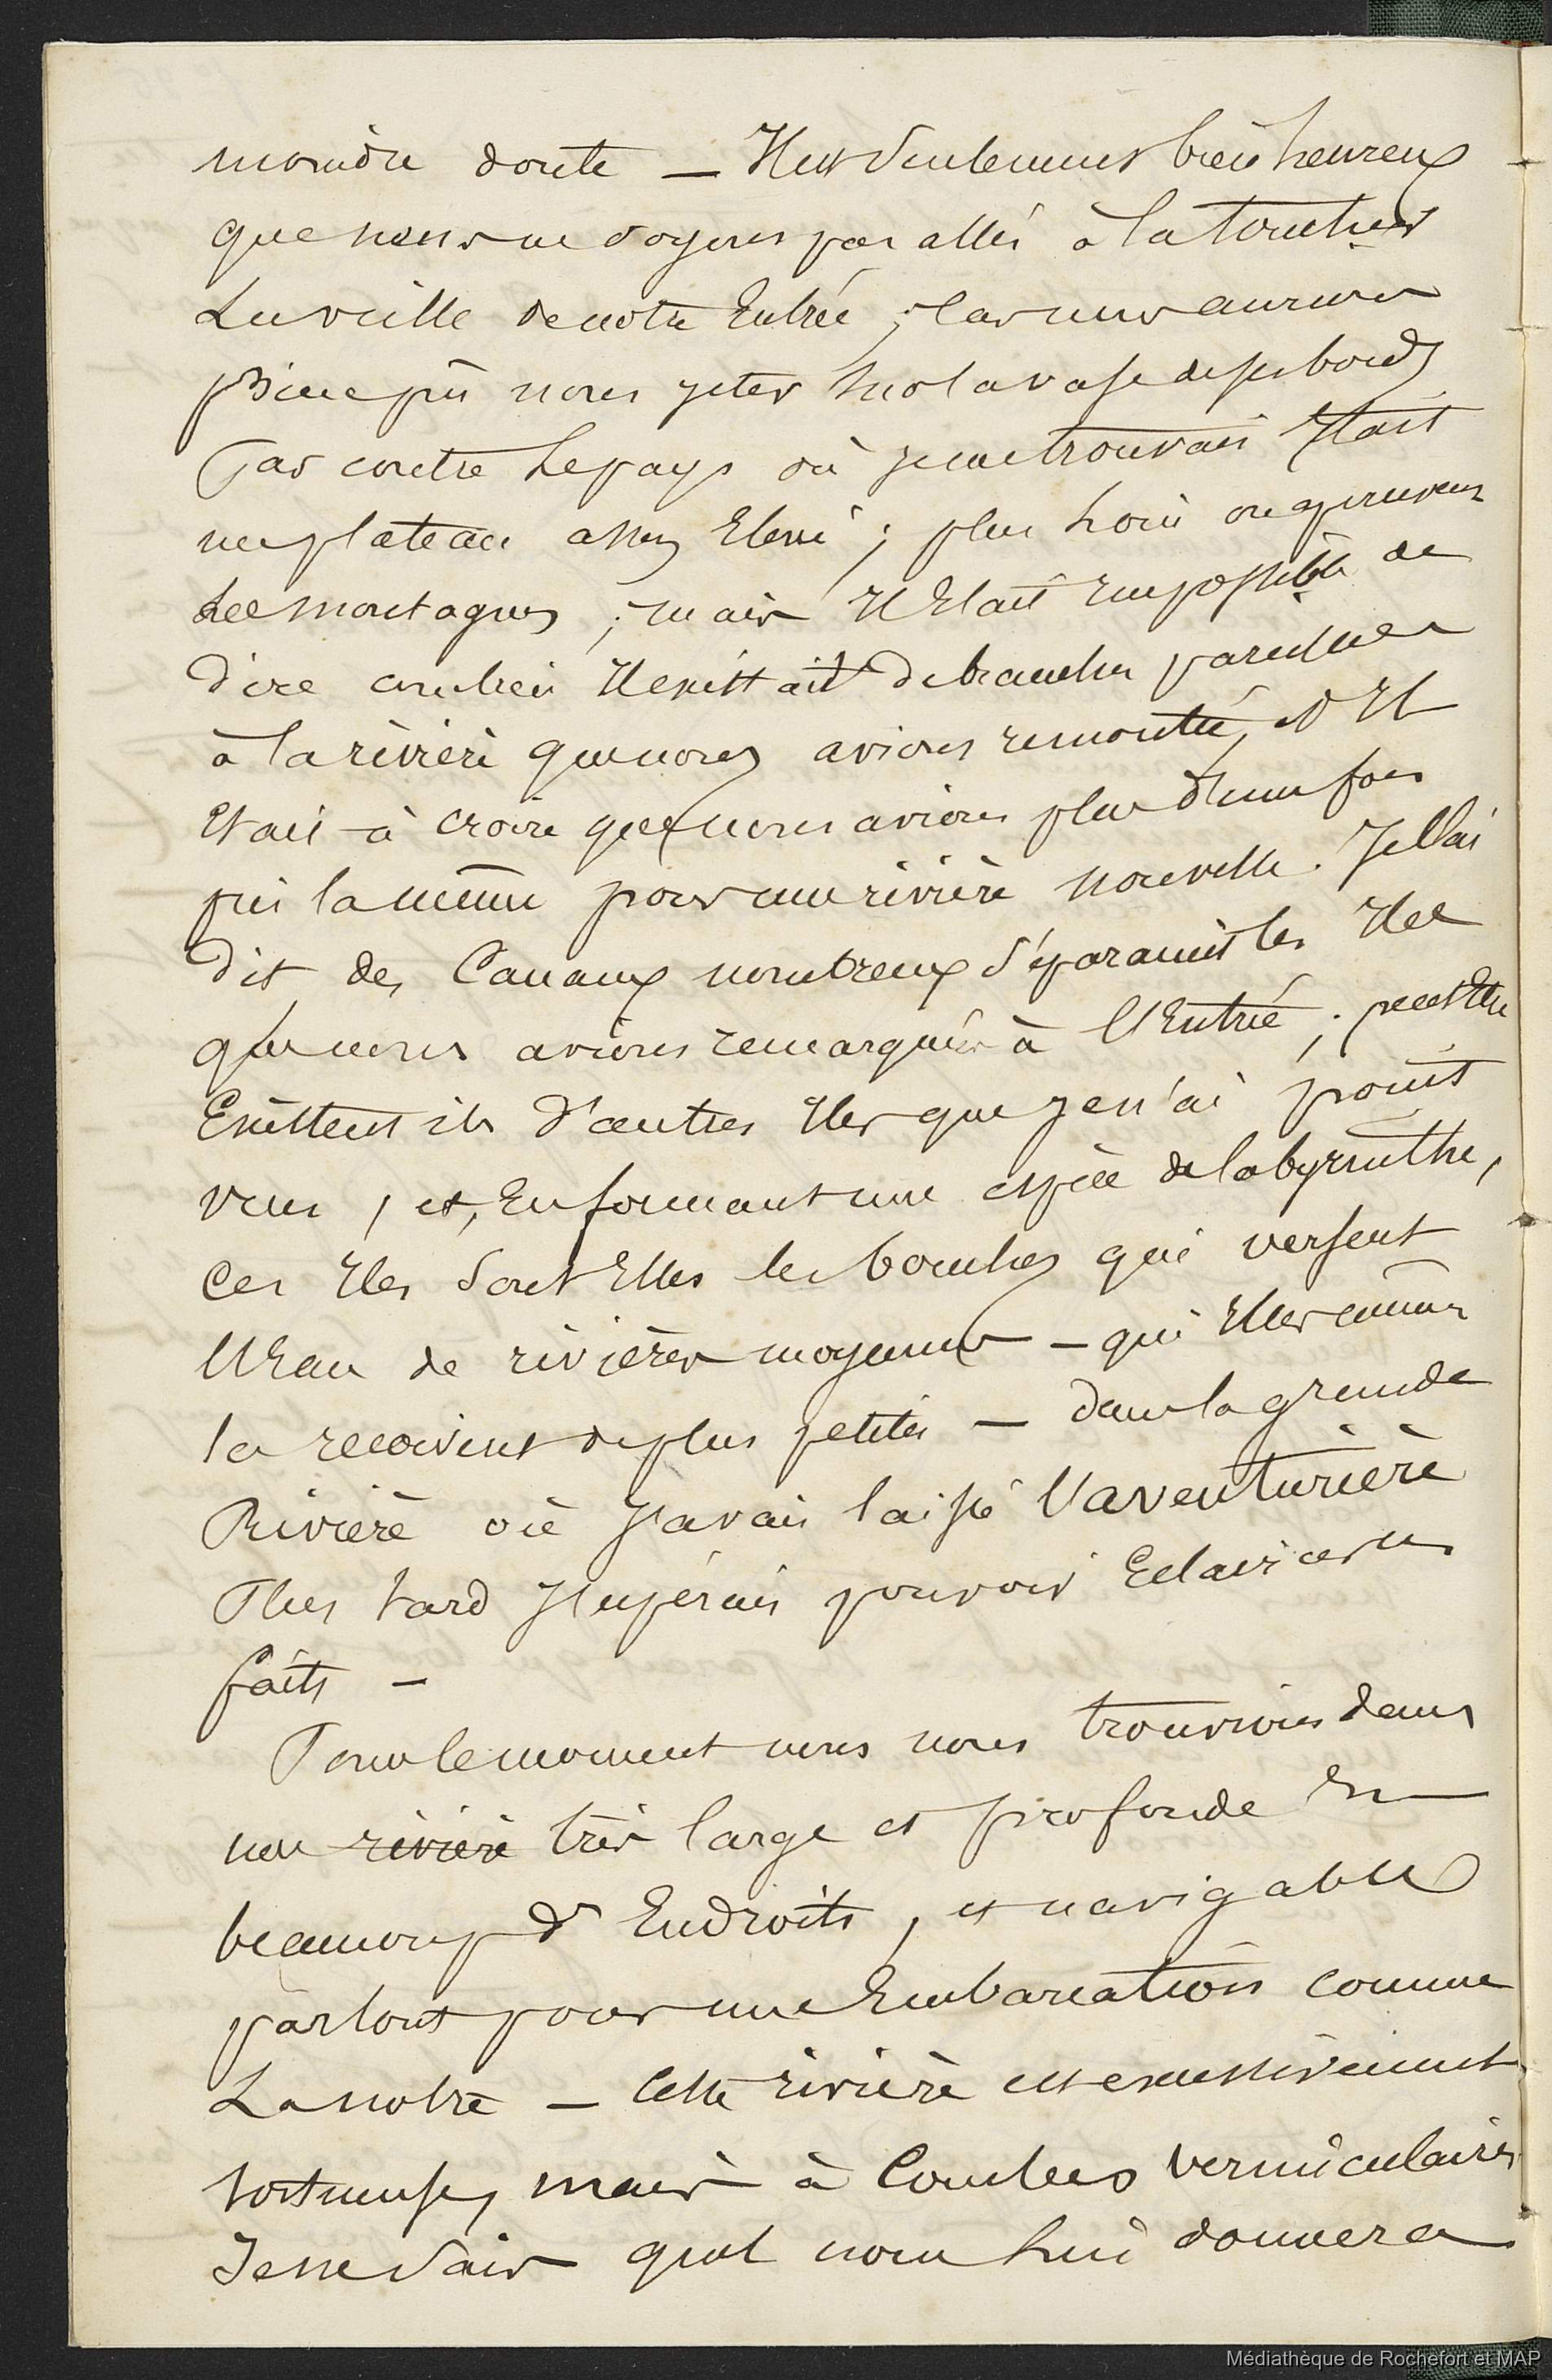 moindre doute — Il est seulement bien heureux
que nous ne soyons pas allés à la toucher
La veille de notre Entrée ; car nous aurions
Bien pû nous jeter sur la vase de ses bords
Par contre Le pays où je me trouvais Etait
un plateau assez Elevé ; plus loin on aperçevait
Les montagnes ; mais Il Etait Impossible de
dire combien Il existait de branches pareilles
à la rivière que nous avions remontée, et Il
Etait à croire que nous avions plus d'une fois
pris la même pour une rivière nouvelle. Je l'ai
dit, des Canaux nombreux séparaient les Iles
que nous avions remarquées à l'Entrée ; peut Etre
Existent ils d'autres Iles que je n'ai point
vues, et, En formant une espèce de labyrinthe,
Ces Iles sont Elles les bouches qui versent
l'Eau de rivières moyennes — qui Elles mêmes
la recoivent de plus petites — dans la grande
Rivière où J'avais laissé l'aventurière
Plus tard J'espérais pouvoir Eclaircir ces
faits —
Pour le moment nous nous trouvions dans
une rivière très large et profonde En
beaucoup d'Endroits, et navigable
partout pour une Embarcation comme
La notre — Cette rivière est excessivement
tortueuse, mais à Courbes vermiculaires
Je ne sais quel nom lui donnera